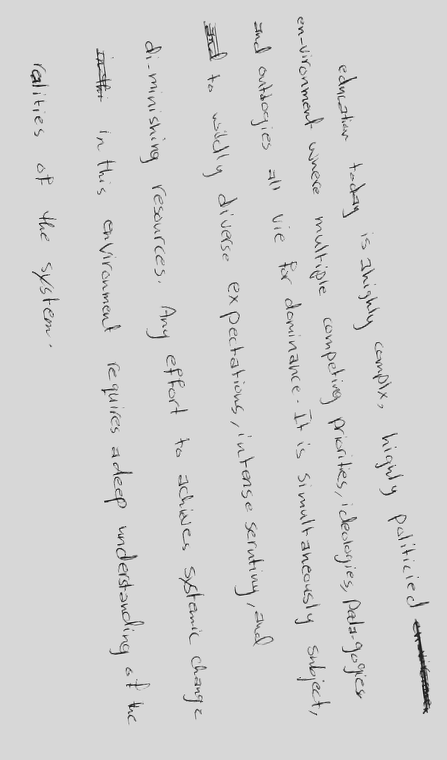 education today is ahighly complx, highly politicied
en-vironment where multiple competing priorites, ideologies, pada-gogies
and outologies all vie for dominance. It is simultaneously subject,
to wildly diverse expectations, intense scrutiny, and
di-minishing resources. Any effort to achives systemic change
in this environment requires adeep understanding of the
realities of the system.